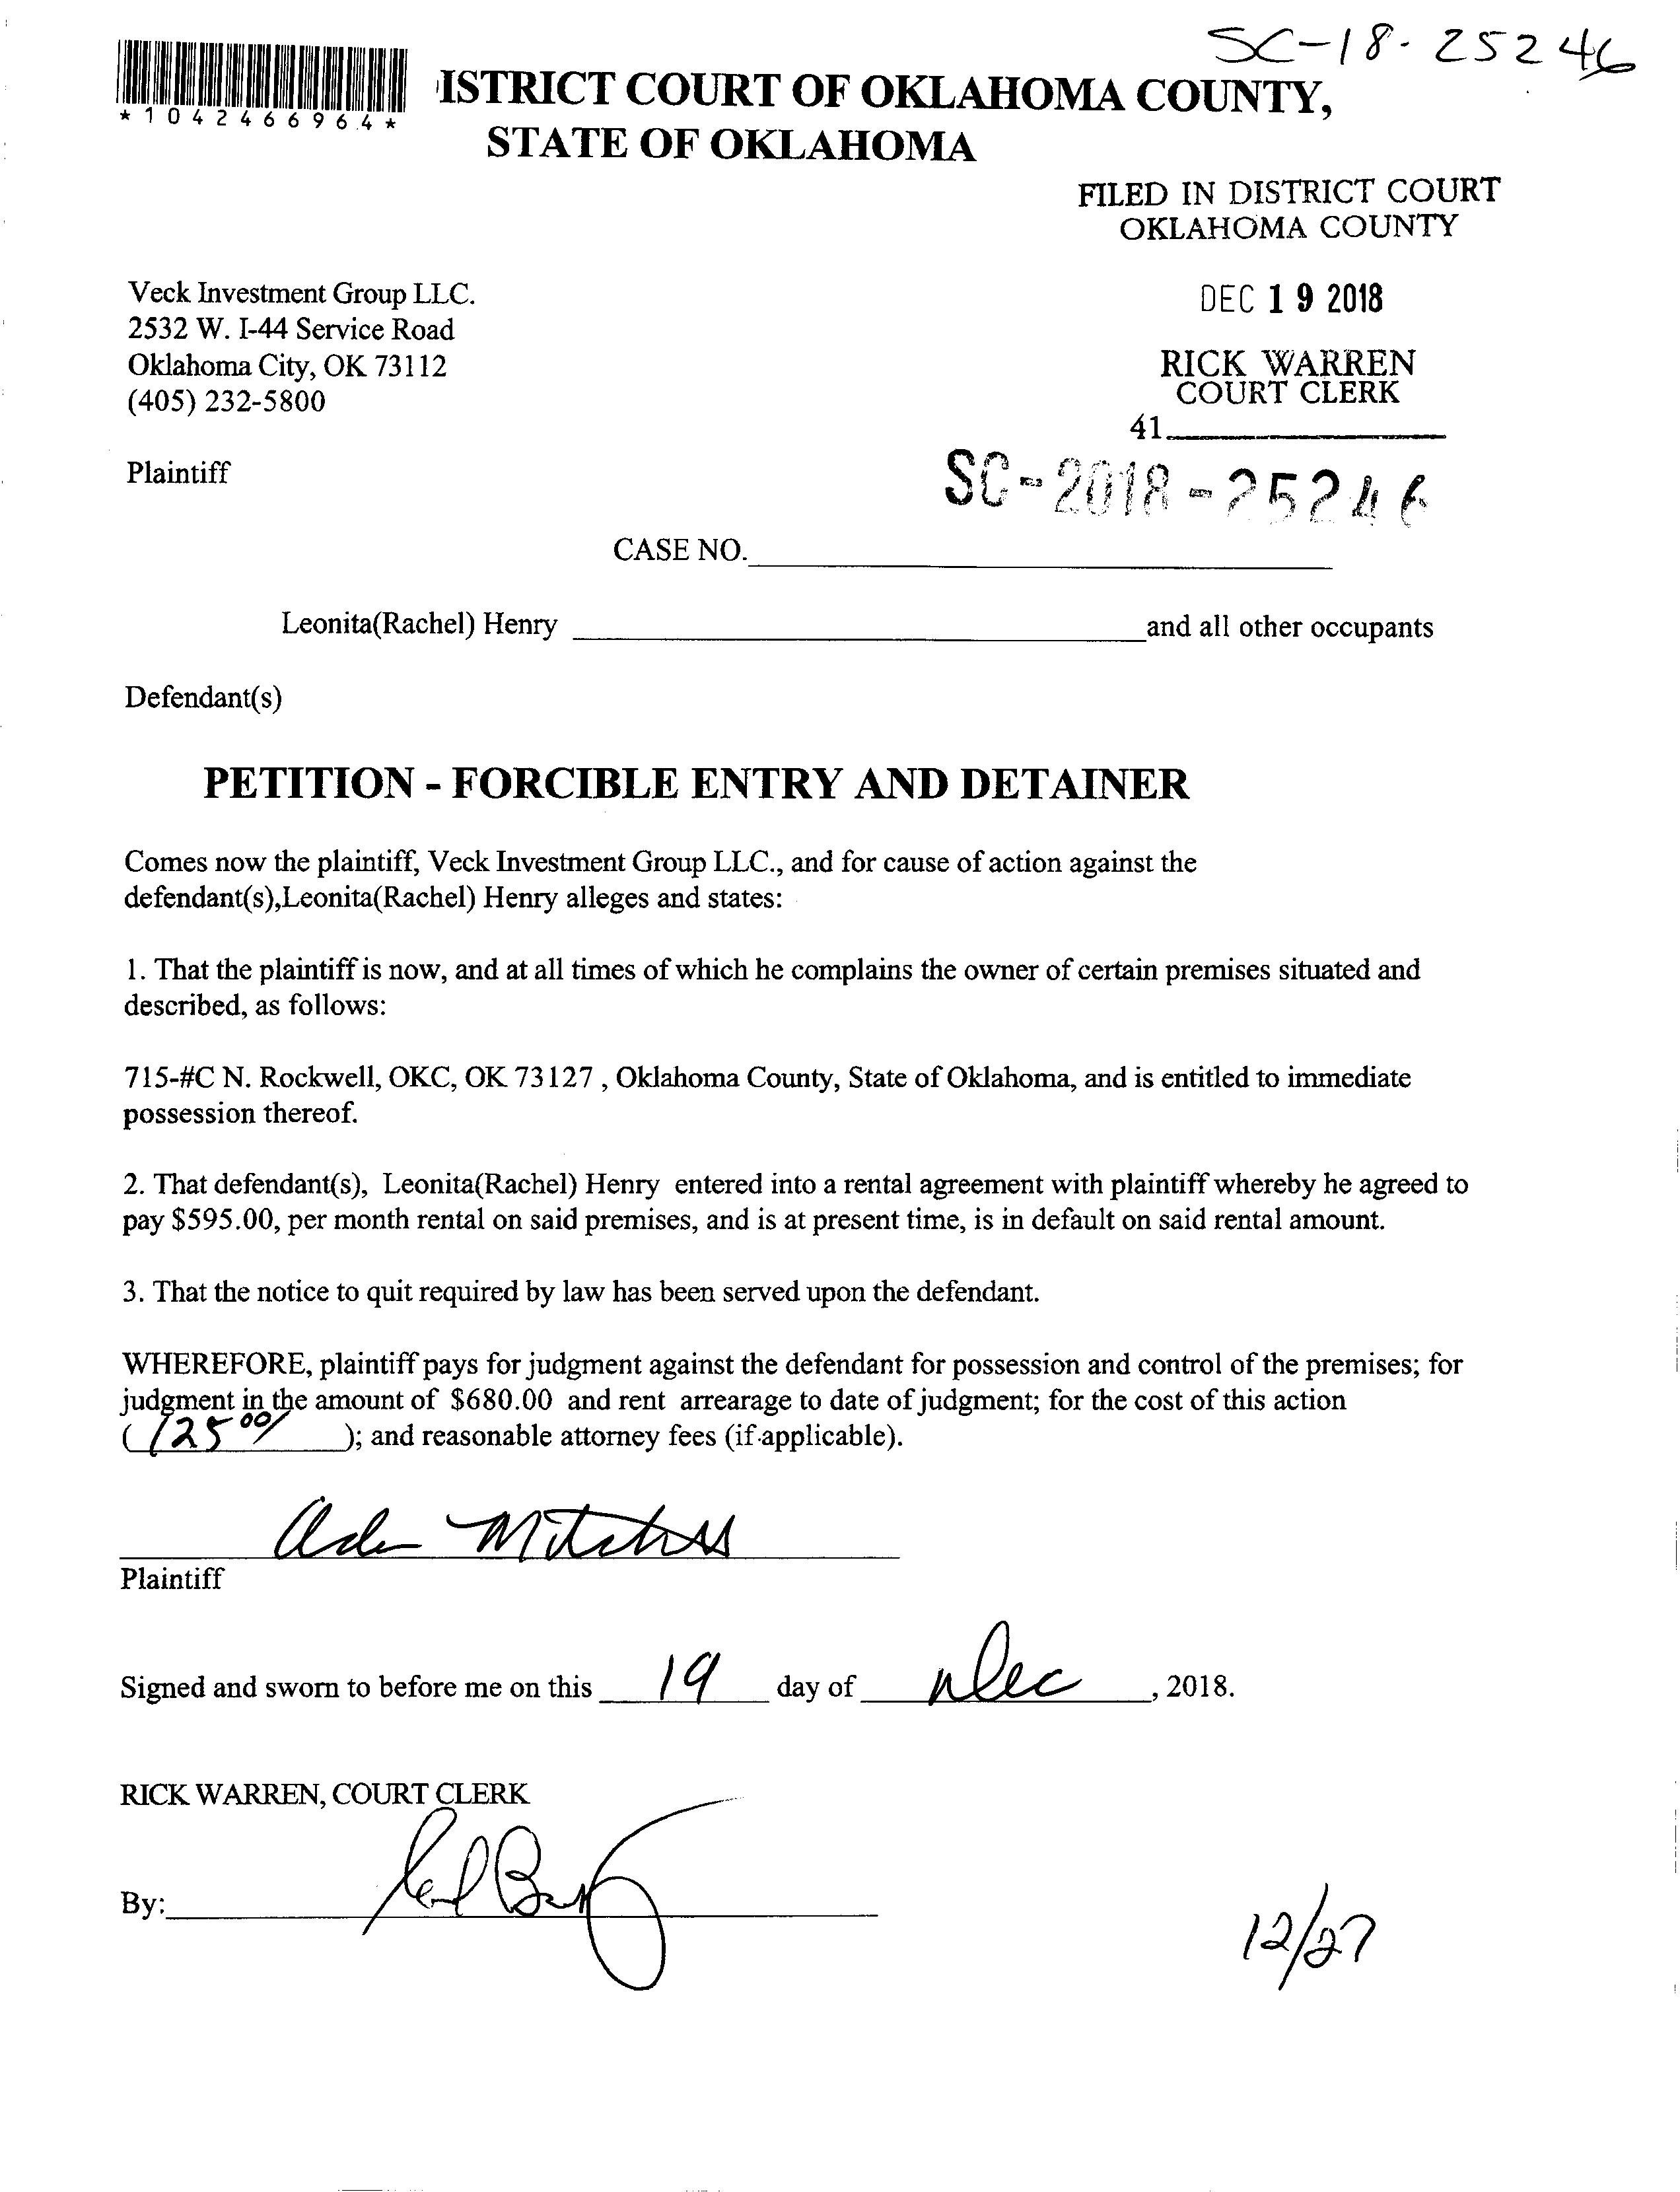 SC-18-25246
*1042466964*
ISTRICT COURT OF OKLAHOMA COUNTY,
STATE OF OKLAHOMA
FILED IN DISTRICT COURT
OKLAHOMA COUNTY
DEC 19 2018
RICK WARREN
COURT CLERK
41
Veck Investment Group LLC.
2532 W. I-44 Service Road
Oklahoma City, OK 73112
(405) 232-5800
Plaintiff
SC-2018-25246
CASE NO.
Leonita(Rachel) Henry and all other occupants
Defendant(s)
PETITION - FORCIBLE ENTRY AND DETAINER
Comes now the plaintiff, Veck Investment Group LLC., and for cause of action against the
defendant(s),Leonita(Rachel) Henry alleges and states:
1. That the plaintiff is now, and at all times of which he complains the owner of certain premises situated and
described, as follows:
715-#C N. Rockwell, OKC, OK 73127 , Oklahoma County, State of Oklahoma, and is entitled to immediate
possession thereof.
2. That defendant(s), Leonita(Rachel) Henry entered into a rental agreement with plaintiff whereby he agreed to
pay $595.00, per month rental on said premises, and is at present time, is in default on said rental amount.
3. That the notice to quit required by law has been served upon the defendant.
WHEREFORE, plaintiff pays for judgment against the defendant for possession and control of the premises; for
judgment in the amount of $680.00 and rent arrearage to date of judgment; for the cost of this action
(125 00/ ); and reasonable attorney fees (if applicable).
Plaintiff
Signed and sworn to before me on this 19 day of Dec , 2018.
RICK WARREN, COURT CLERK
By:
12/27